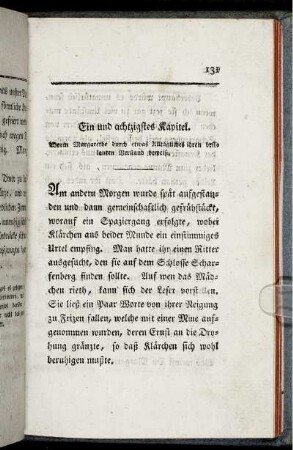 131
Ein und achtzigstes Kapitel.
Worin Margarethe durch etwas Alltägliches ihren brillanten Verstand beweist.
Am andern Morgen wurde spät aufgestan-
den und dann gemeinschaftlich gefrühstückt,
worauf ein Spaziergang erfolgte, wobei
Klärchen aus beider Munde ein einstimmiges
Urtel empfing. Man hatte ihr einen Ritter
ausgesucht, den sie auf dem Schlosse Schar-
fenberg finden sollte. Auf wen das Mäd-
chen rieth, kann sich der Leser vorstellen.
Sie ließ ein Paar Worte von ihrer Neigung
zu Frizen fallen, welche mit einer Mine auf-
genommen wurden, deren Ernst an die Dro-
hung gränzte, so daß Klärchen sich wohl
beruhigen mußte.